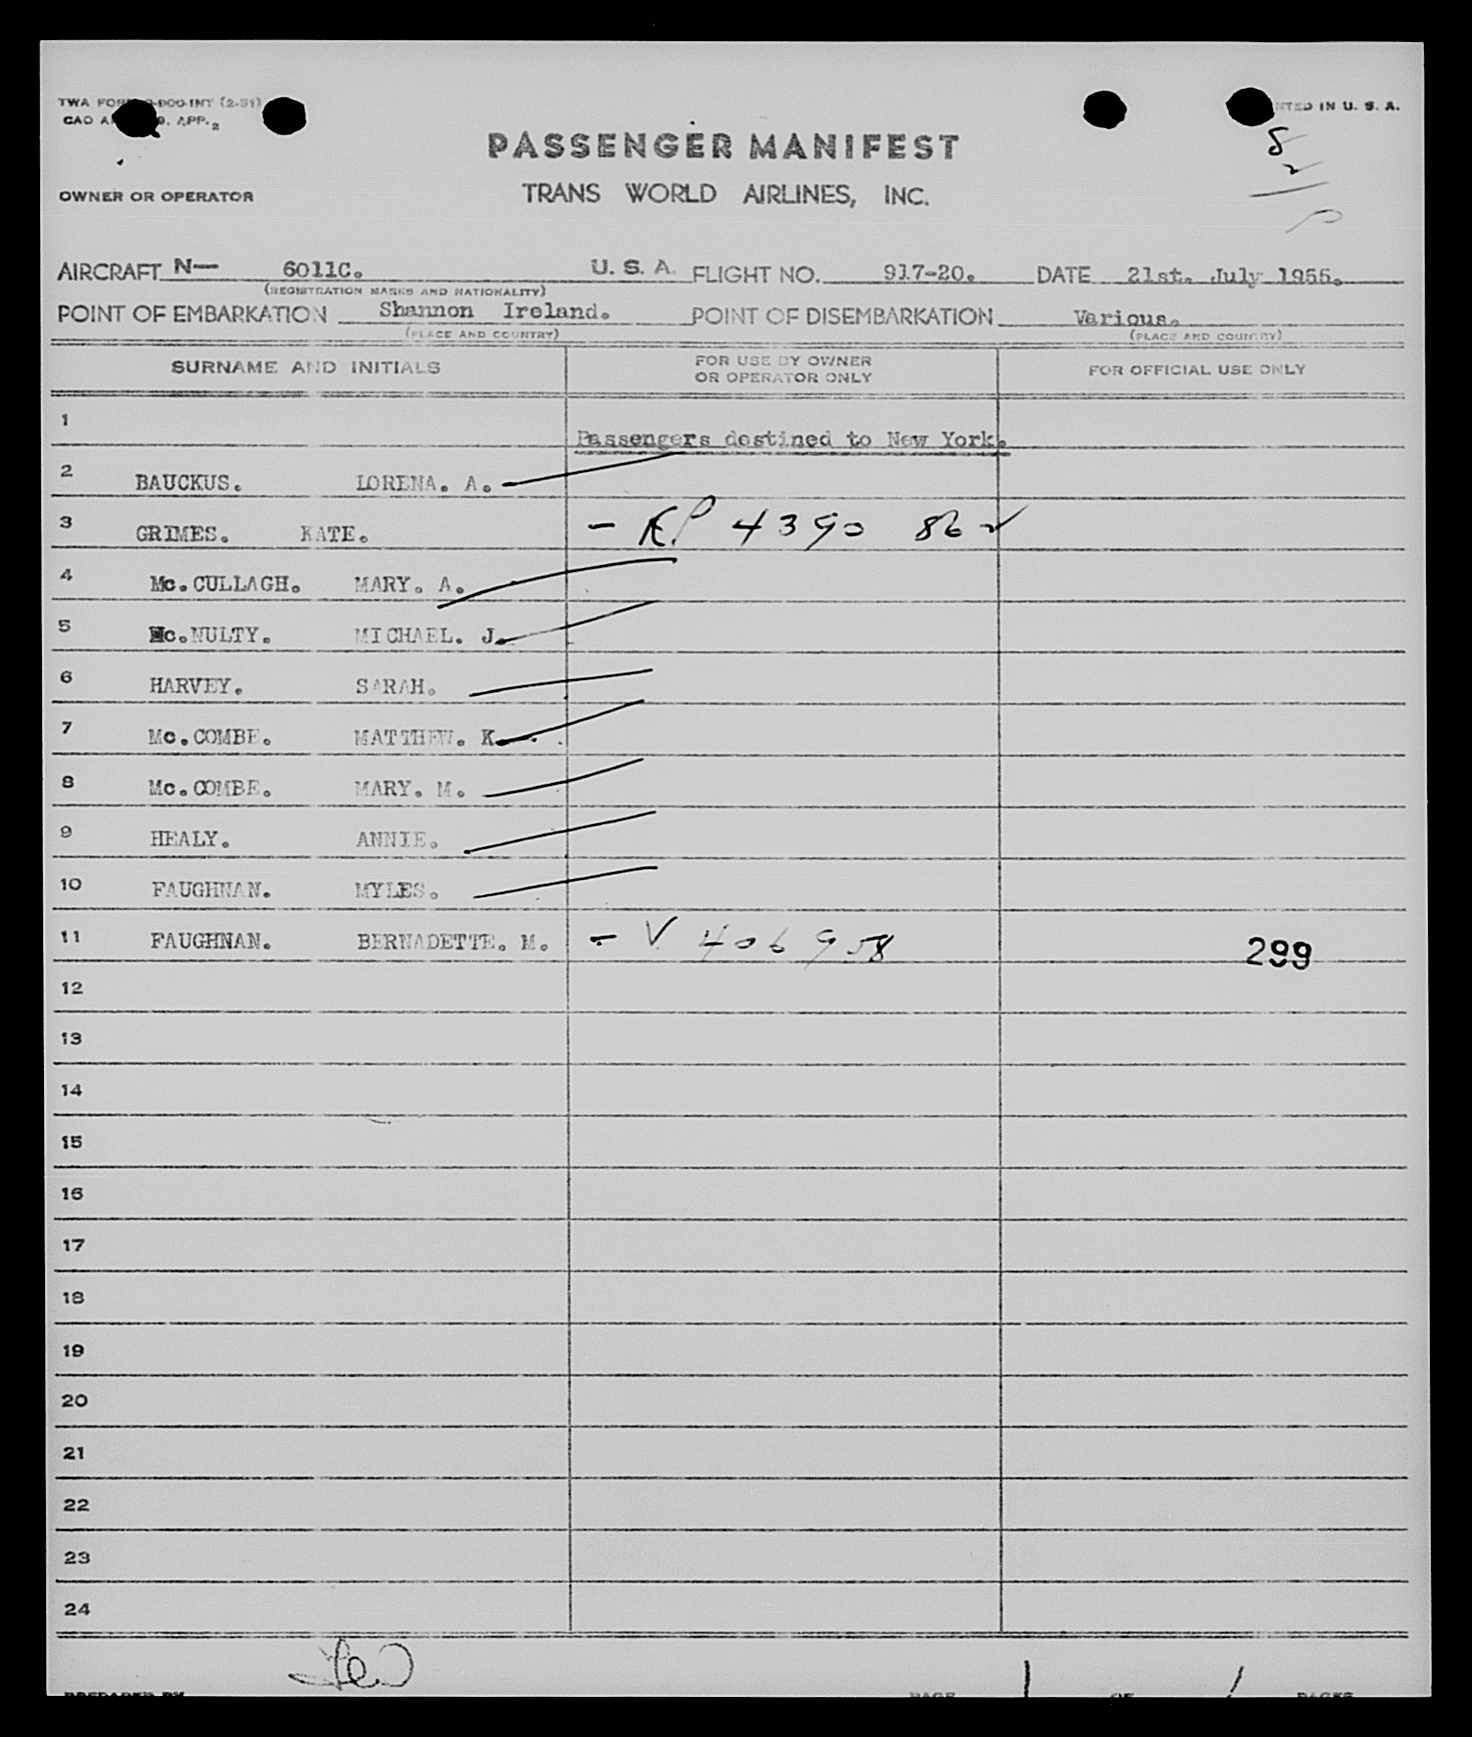 TWA FORM -900-INT (2-51) PRINTED IN U. S. A.
CAO A 9. APP. 2
PASSENGER MANIFEST
OWNER OR OPERATOR TRANS WORLD AIRLINES, INC.
AIRCRAFT N— 6011C. U. S. A. FLIGHT NO. 917-20. DATE 21st. July 1955.
(REGISTRATION MARKS AND NATIONALITY)
POINT OF EMBARKATION Shannon Ireland. POINT OF DISEMBARKATION Various.
(PLACE AND COUNTRY) (PLACE AND COUNTRY)
SURNAME AND INITIALS FOR USE BY OWNER OR OPERATOR ONLY FOR OFFICIAL USE ONLY
1 Passengers destined to New York.
2 BAUCKUS. LORENA. A.
3 GRIMES. KATE. - RP 4390 86
4 Mc.CULLAGH. MARY. A.
5 Mc.NULTY. MICHAEL. J.
6 HARVEY. SARAH.
7 Mc.COMBE. MATTHEW. K.
8 Mc.COMBE. MARY. M.
9 HEALY. ANNIE.
10 FAUGHNAN. MYLES.
11 FAUGHNAN. BERNADETTE. M. - V 406958 299
12
13
14
15
16
17
18
19
20
21
22
23
24
PREPARED BY PAGE 1 OF 1 PAGES